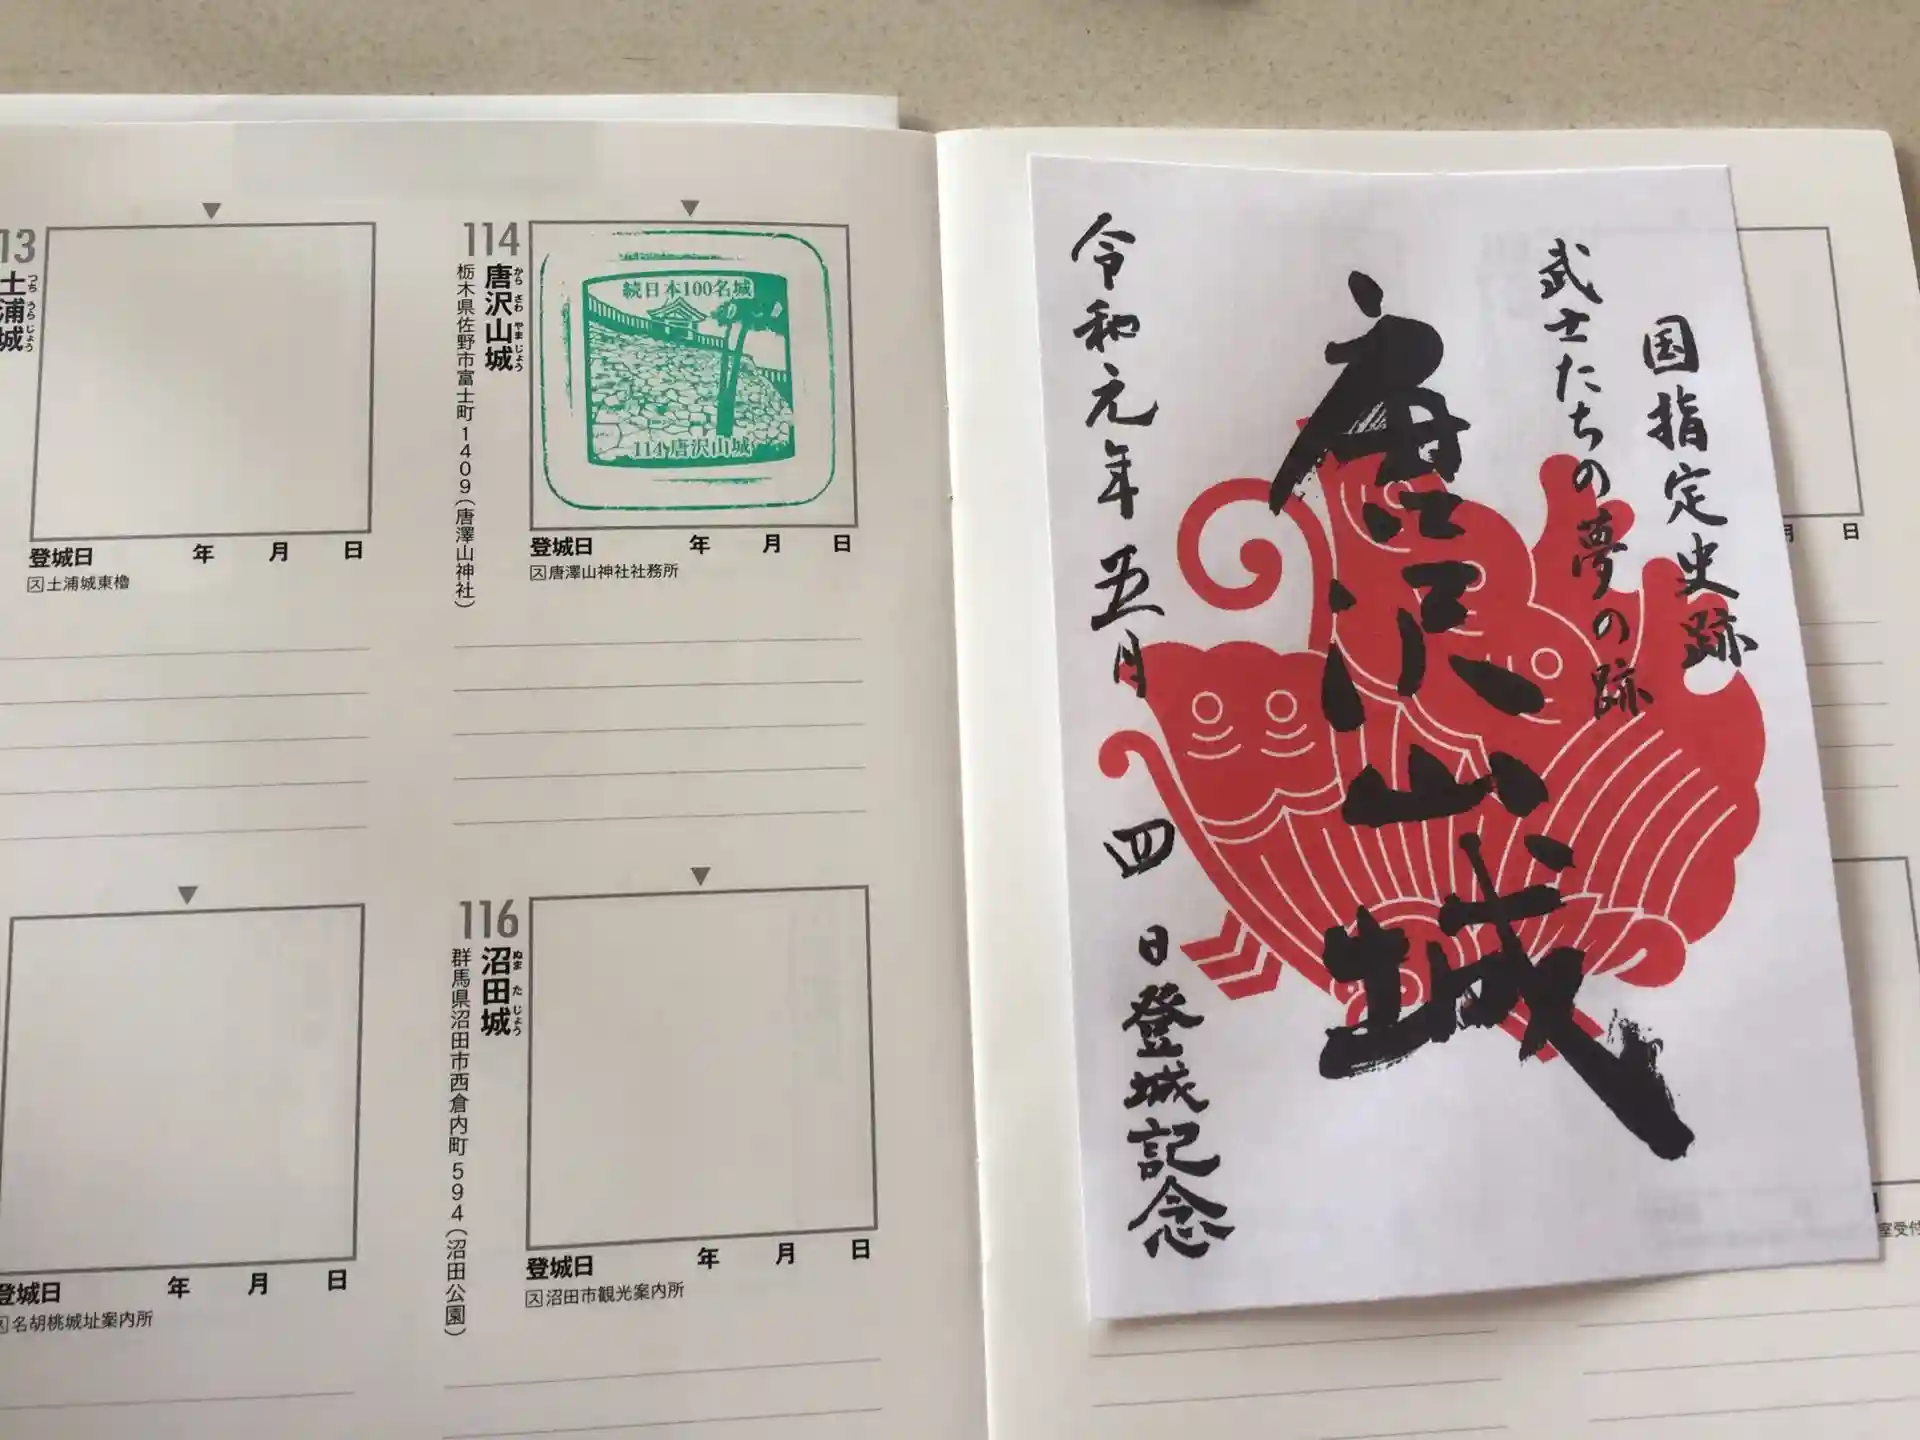 13
土浦城
つちうらじょう
登城日 年 月 日
ス土浦城東櫓
114
唐沢山城
からさわやまじょう
栃木県佐野市富士町1409(唐澤山神社)
続日本100名城
114 唐沢山城
登城日 年 月 日
ス唐澤山神社社務所
登城日 年 月 日
ス名胡桃城址案内所
116
沼田城
ぬまたじょう
群馬県沼田市西倉内町594(沼田公園)
登城日 年 月 日
ス沼田市観光案内所
国指定史跡
武士たちの夢の跡
唐沢山城
令和元年五月四日登城記念
月 日
室受付